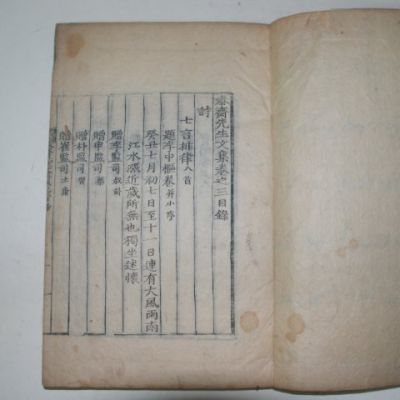 齋先生文集卷之三目錄
詩
七言排律八首
題李中樞卷并小序
癸丑七月初七日至十一日連有大風雨雨
江水漲近歲所無也獨坐述懷
贈李監司
贈申監司
贈朴監司
贈崔監司